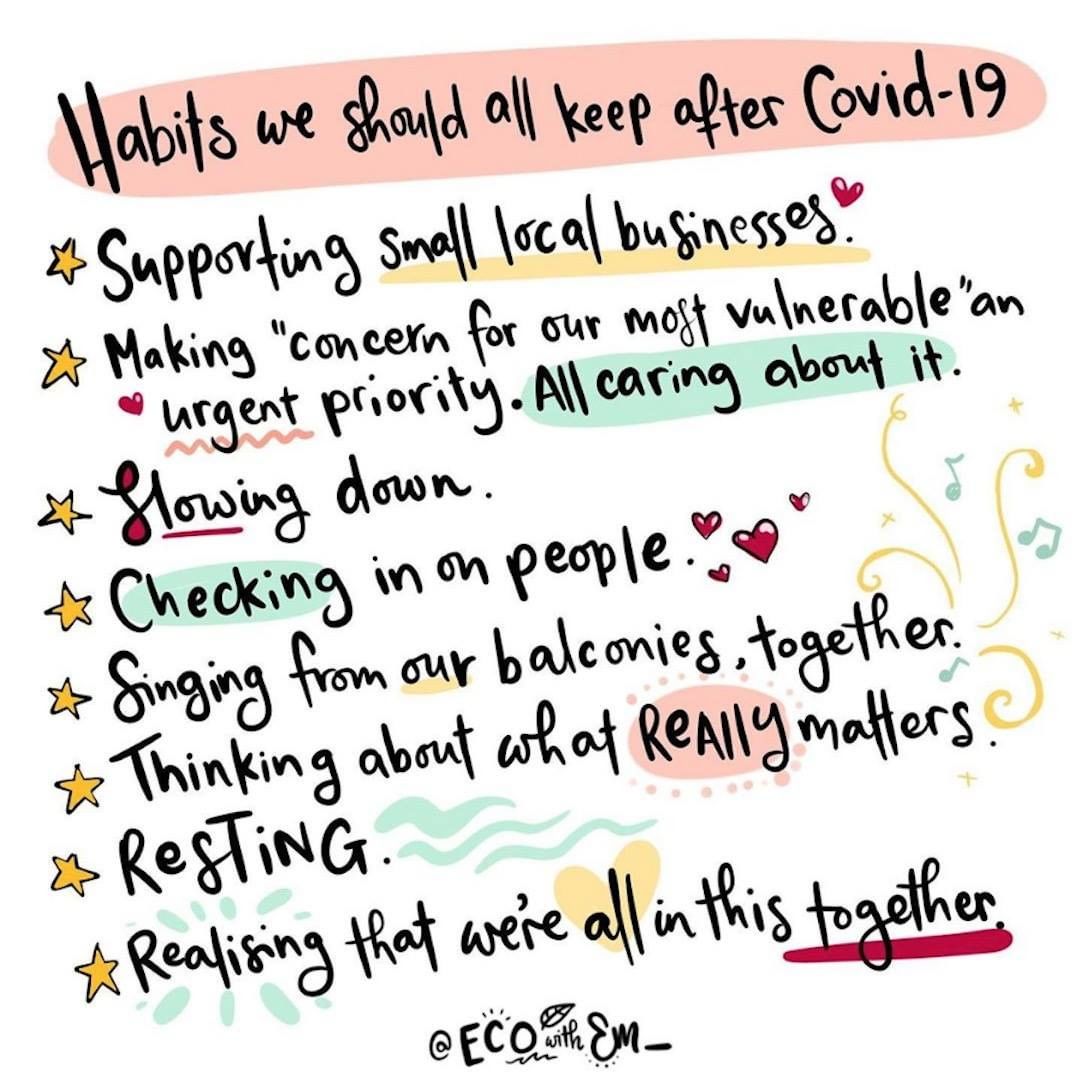 Habits we should all keep after Covid-19
Supporting small local businesses.
Making "concern for our most vulnerable" an
urgent priority. All caring about it.
Slowing down.
Checking in on people.
Singing from our balconies, together.
Thinking about what REALLY matters.
RESTING.
Realising that we're all in this together.
@ECO with Em_